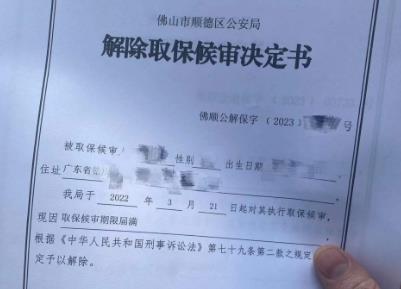 佛山市顺德区公安局
解除取保候审决定书
佛顺公解保字（2023） 号
被取保候审 性别 出生日期
住址 广东省
我局于 2022 年 3 月 21 日起对其执行取保候审，
现因 取保候审期限届满
根据《中华人民共和国刑事诉讼法》第七十九条第二款之规定
定予以解除。